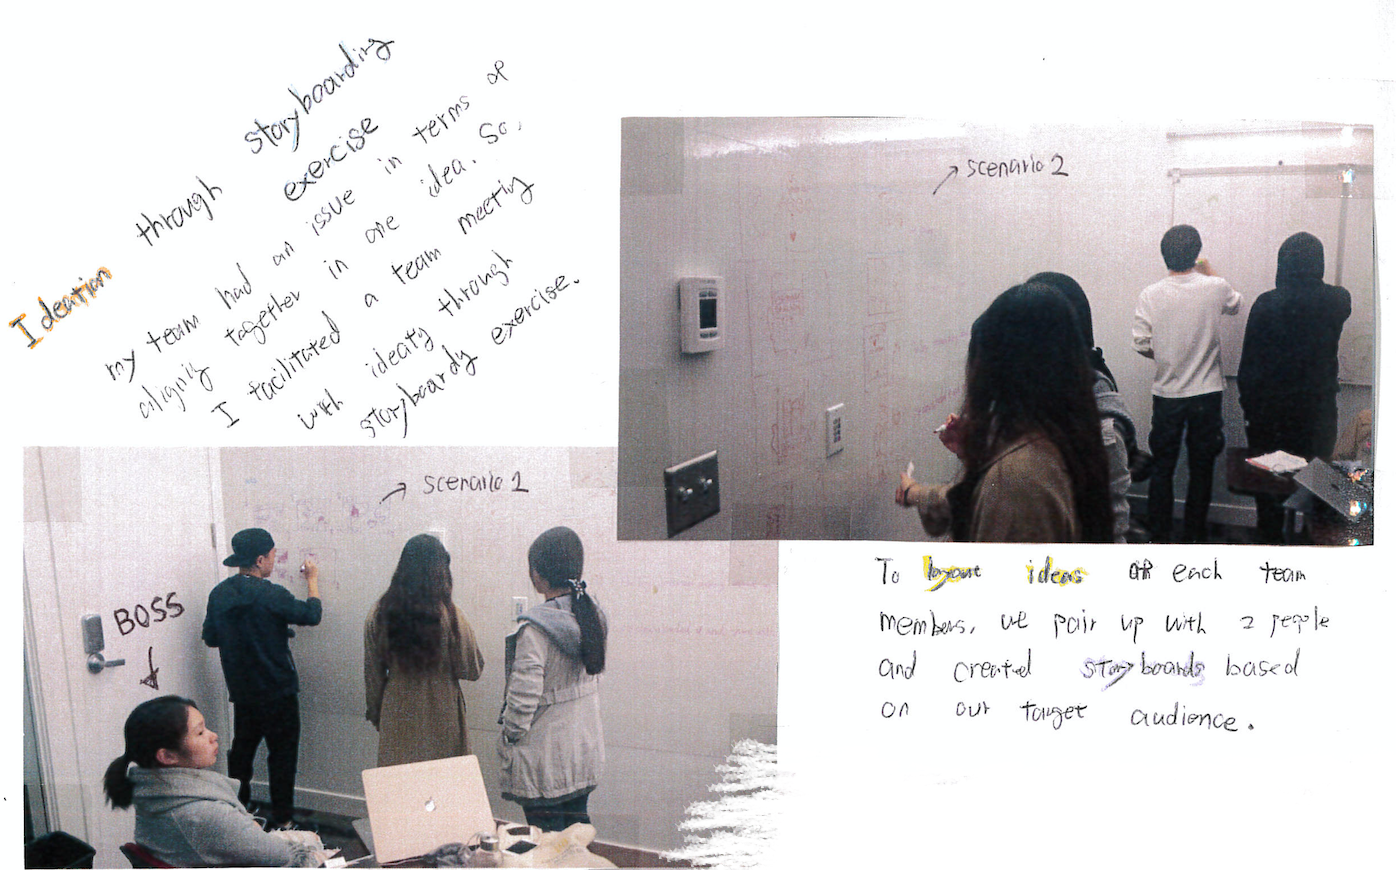 Ideation through storyboarding
exercise
my team had an issue in terms of
aligning together in one idea. So,
I facilitated a team meeting
with ideating through
storyboardg exercise.
scenario 2
scenario 1
BOSS
To layout ideas of each team
members, we pair up with 2 people
and created storyboards based
on our target audience.